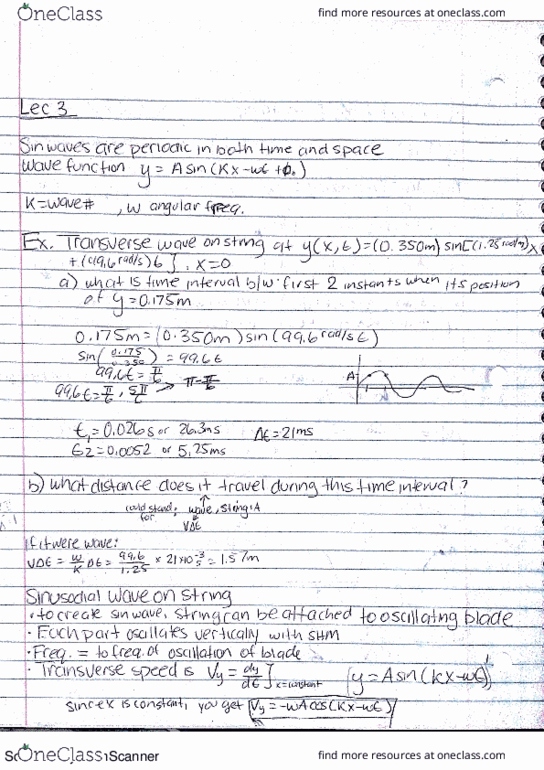 OneClass find more resources at oneclass.com
Lec 3
Sin waves are periodic in both time and space
Wave function y = A sin(Kx-wt+φ.)
K=wave# , w angular freq.
Ex. Transverse wave on string at y(x,t)=(0.350m) sin[(1.25rad/m)x
+(99.6rad/s)t], x=0
a) what is time interval b/w first 2 instants when its position
of y=0.175m
0.175m=(0.350m)sin(99.6rad/s t)
sin(0.175/0.350) = 99.6t
99.6t=π/6
99.6t=π/6, 5π/6 → π-π/6
A
t1=0.026s or 26.3ms Δt=21ms
t2=0.0052 or 5.25ms
b) What distance does it travel during this time interval?
could stand for: wave, string:A
vΔt
if it were wave:
vΔt = w/k Δt = 99.6/1.25 x 21x10-3s = 1.57m
Sinusodial Wave on String
• to create sin wave, string can be attached to oscillating blade
• Each part oscillates vertically with SHM
• Freq. = to freq. of oscillation of blade
• Transverse speed is Vy = dy/dt]x=constant (y=Asin(Kx-wt)
since x is constant, you get Vy=-wAcos(Kx-wt)
OneClass Scanner find more resources at oneclass.com